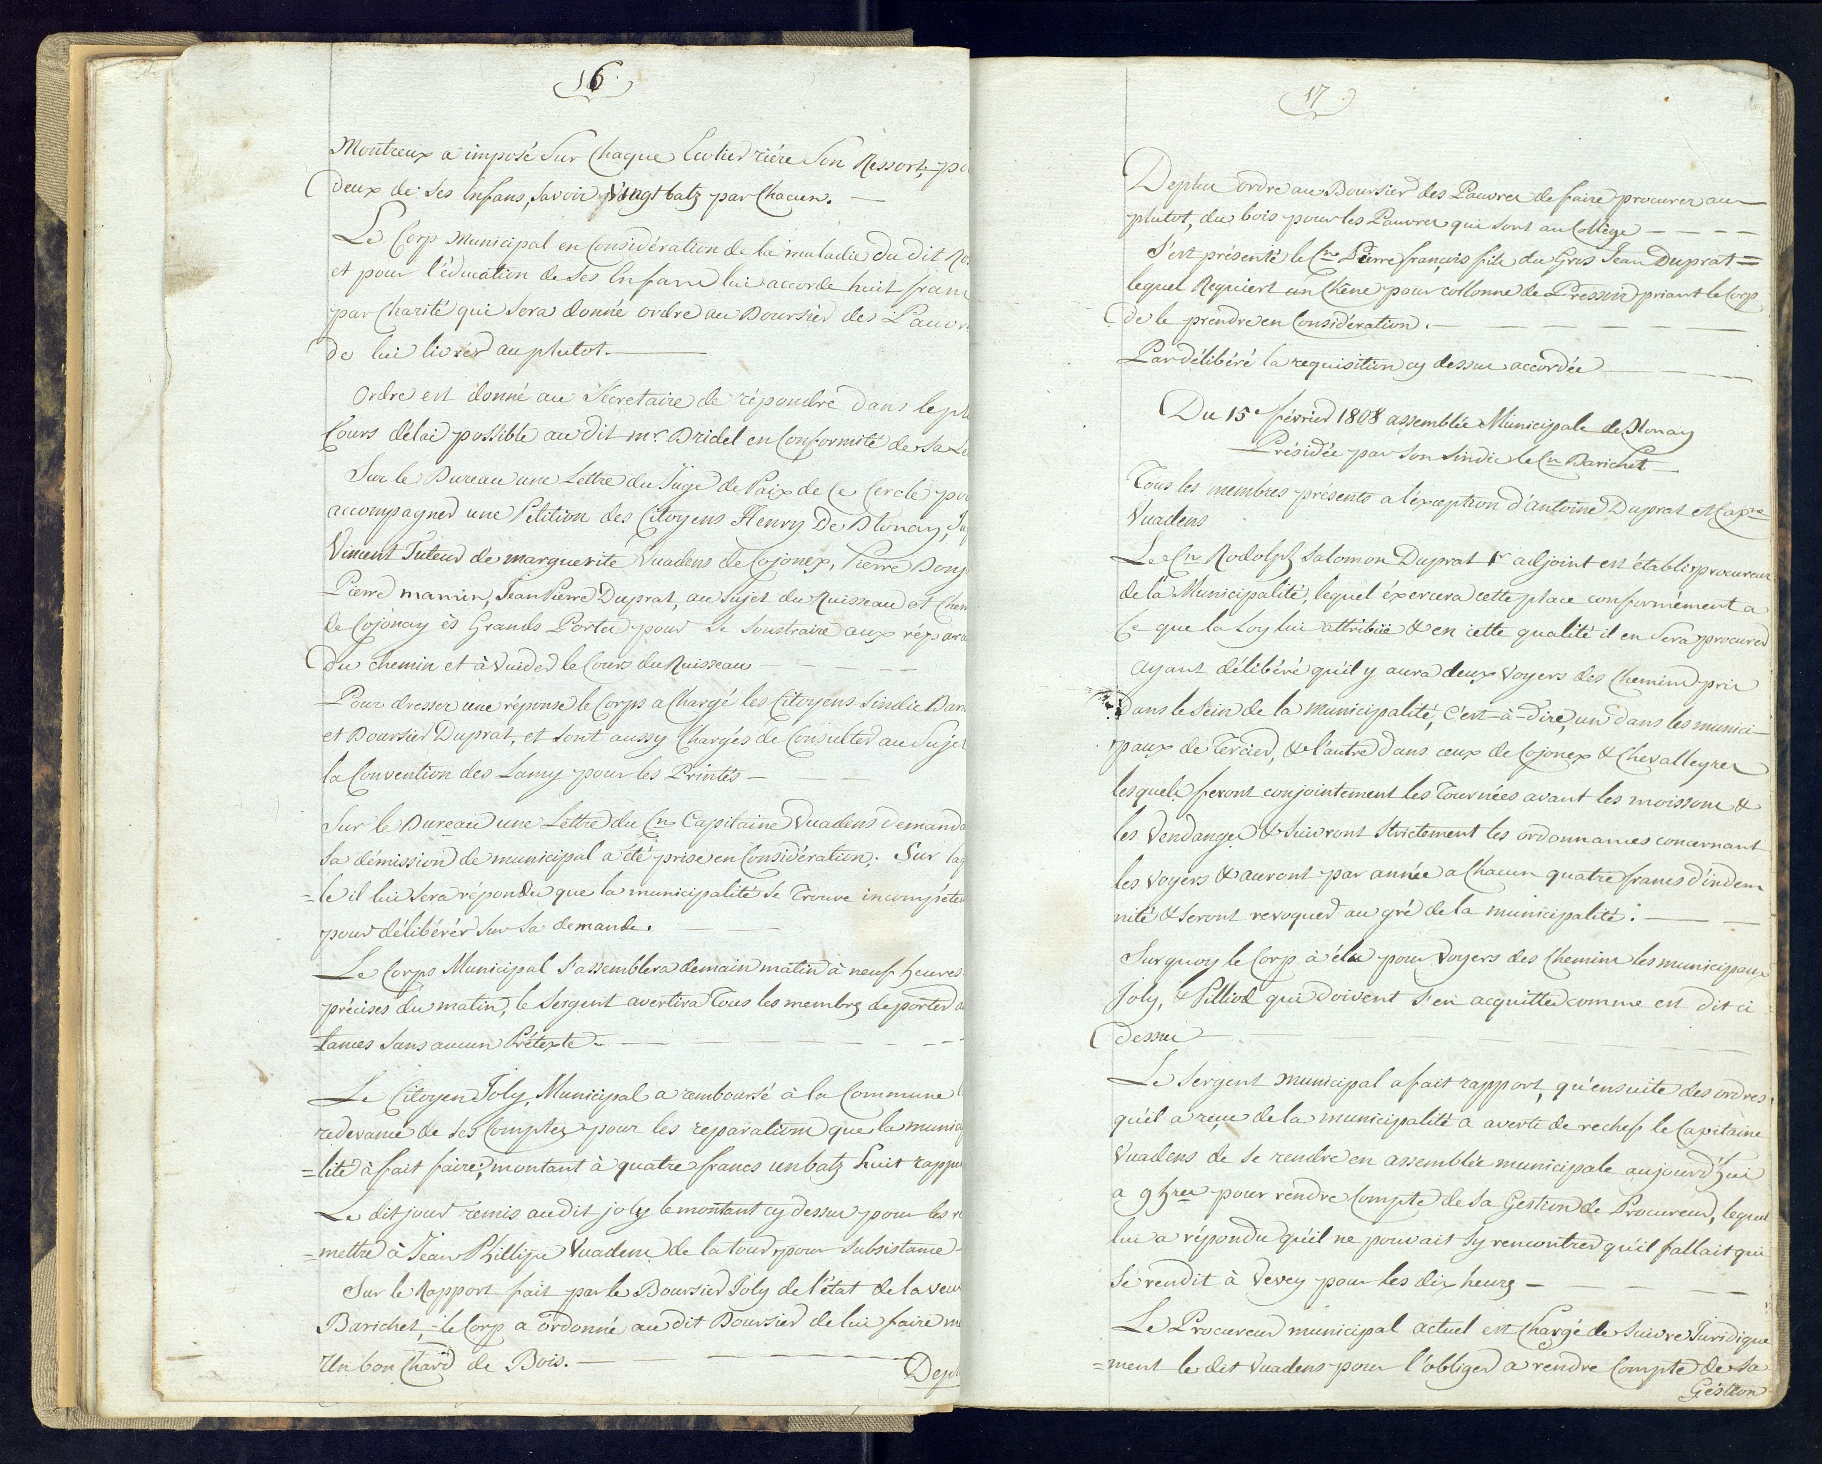 16
Montreux a imposé Sur Chaque Ecolier riére Son Ressort, po
deux de Ses Enfans, Savoir Vingt batz par Chacun.
Le Corp Municipal en Considération de la maladie du dit Ro
et pour l'éducation de Ses Enfans lui accorde huit franc
par Charité qui Sera donné ordre au Boursier des Pauvr
de lui livrer au plutot.
Ordre est donné au Sécretaire de répondre dans le pl
Cours délai possible au dit Mr. Bridel en Conformité de Sa Le
Sur le Bureau une Lettre du Juge de Paix de Ce Cercle pou
accompagner une Pétition des Citoyens Henry De Blonay, Ju
Vincent Tuteur de marguerite Vuadens de Cojonex, Pierre Bonj
Pierre mamin, Jean Pierre Duprat, au Sujet du Ruisseau et Chem
de Cojonay ès Grands Portes pour se Soustraire aux répara
du chemin et à Vuider le Cours du Ruisseau
Pour dresser une réponse le Corps a Chargé les Citoyens Sindic Bari
et Boursier Duprat, et Sont aussy Chargés de Consulter au Sujet
la Convention des Lamy pour les Printés
Sur le Bureau une Lettre du Cn Capitaine Vuadens demanda
Sa démission de municipal a été prise en Considération. Sur laq
=le il lui Sera répondu que la municipalité se Trouve incompéten
pour délibérer Sur Sa demande.
Le Corps Municipal S'assemblera demain matin à neuf heures
précises du matin, le Sergent avertira Tous les membrs de porter a
tances Sans aucun Prétexte
Le Citoyen Joly, Municipal a remboursé à la Commune l
redevance de Ses Comptes pour les réparations que la munici
=lité à fait faire; montant à quatre francs un batz huit rappe
Le dit jour rémis audit joly le montant cy dessus pour les r
=mettre à Jean Phillipe Vuadens de la tour pour Subsistance
Sur le Rapport fait par le Boursier Joly de l'état de la veuv
Barichet, le Corp a ordonné au dit Boursier de lui faire m
Un bon Chard de Bois.
Depl
17
Deplus ordre au Boursier des Pauvres de faire procurer au
plutot, du bois pour les Pauvres qui Sont au Collège
S'est présenté le Cn Pierre françois fils du Gros Jean Duprat =
lequel Requiert un Chêne pour collonne de Pressoir priant le Corp
de le prendre en Considération.
Par délibéré la requisition cy dessus accordée
Du 15e février 1808 assemblée Municipale de Blonay
Présidée par Son Sindic le Cn Barichet
Tous les membres présents a l'exception d'antoine Duprat & Capne
Vuadens
Le Cn Rodolph Salomon Duprat 1r adjoint est établi procureur
de la Municipalité, lequel éxercera cette place conformément a
Ce que la Loy lui attribüe & en cette qualité il en Sera procureur
Ayant délibéré qu'il y aura deux Voyers des Chemins pris
Dans le Sein de la municipalité, C'est-à-dire, un dans les munici-
paux de Tercier, & l'autre dans ceux de Cojonex & Chevalleyres
lesquels feront conjointement les Tournées avant les moissons &
les Vendanges & Suivront Strictement les ordonnances concernant
les Voyers & auront par année a Chacun quatre francs d'indem
nité & Seront revoqués au gré de la municipalité.
Surquoy le Corp à élu pour Voyers des Chemins les municipaux
Joly, & Pilliod qui doivent S'en acquitter comme est dit ci
dessus
Le Sergent municipal a fait rapport, qu'ensuite des ordres
qu'il a reçue de la municipalité a averti de rechef le Capitaine
Vuadens de Se rendre en assemblée municipale aujourd'hui
a 9 hres pour rendre Compte de Sa Gestion de Procureur, lequel
lui a répondu qu'il ne pouvait Sy rencontrer qu'il fallait qui
Se rendit à Vevey pour les dix heurs
Le Procureur municipal actuel est Chargé de Suivre Juridique
=ment le dit Vuadens pour l'obliger a rendre Compte de Sa
Géstion